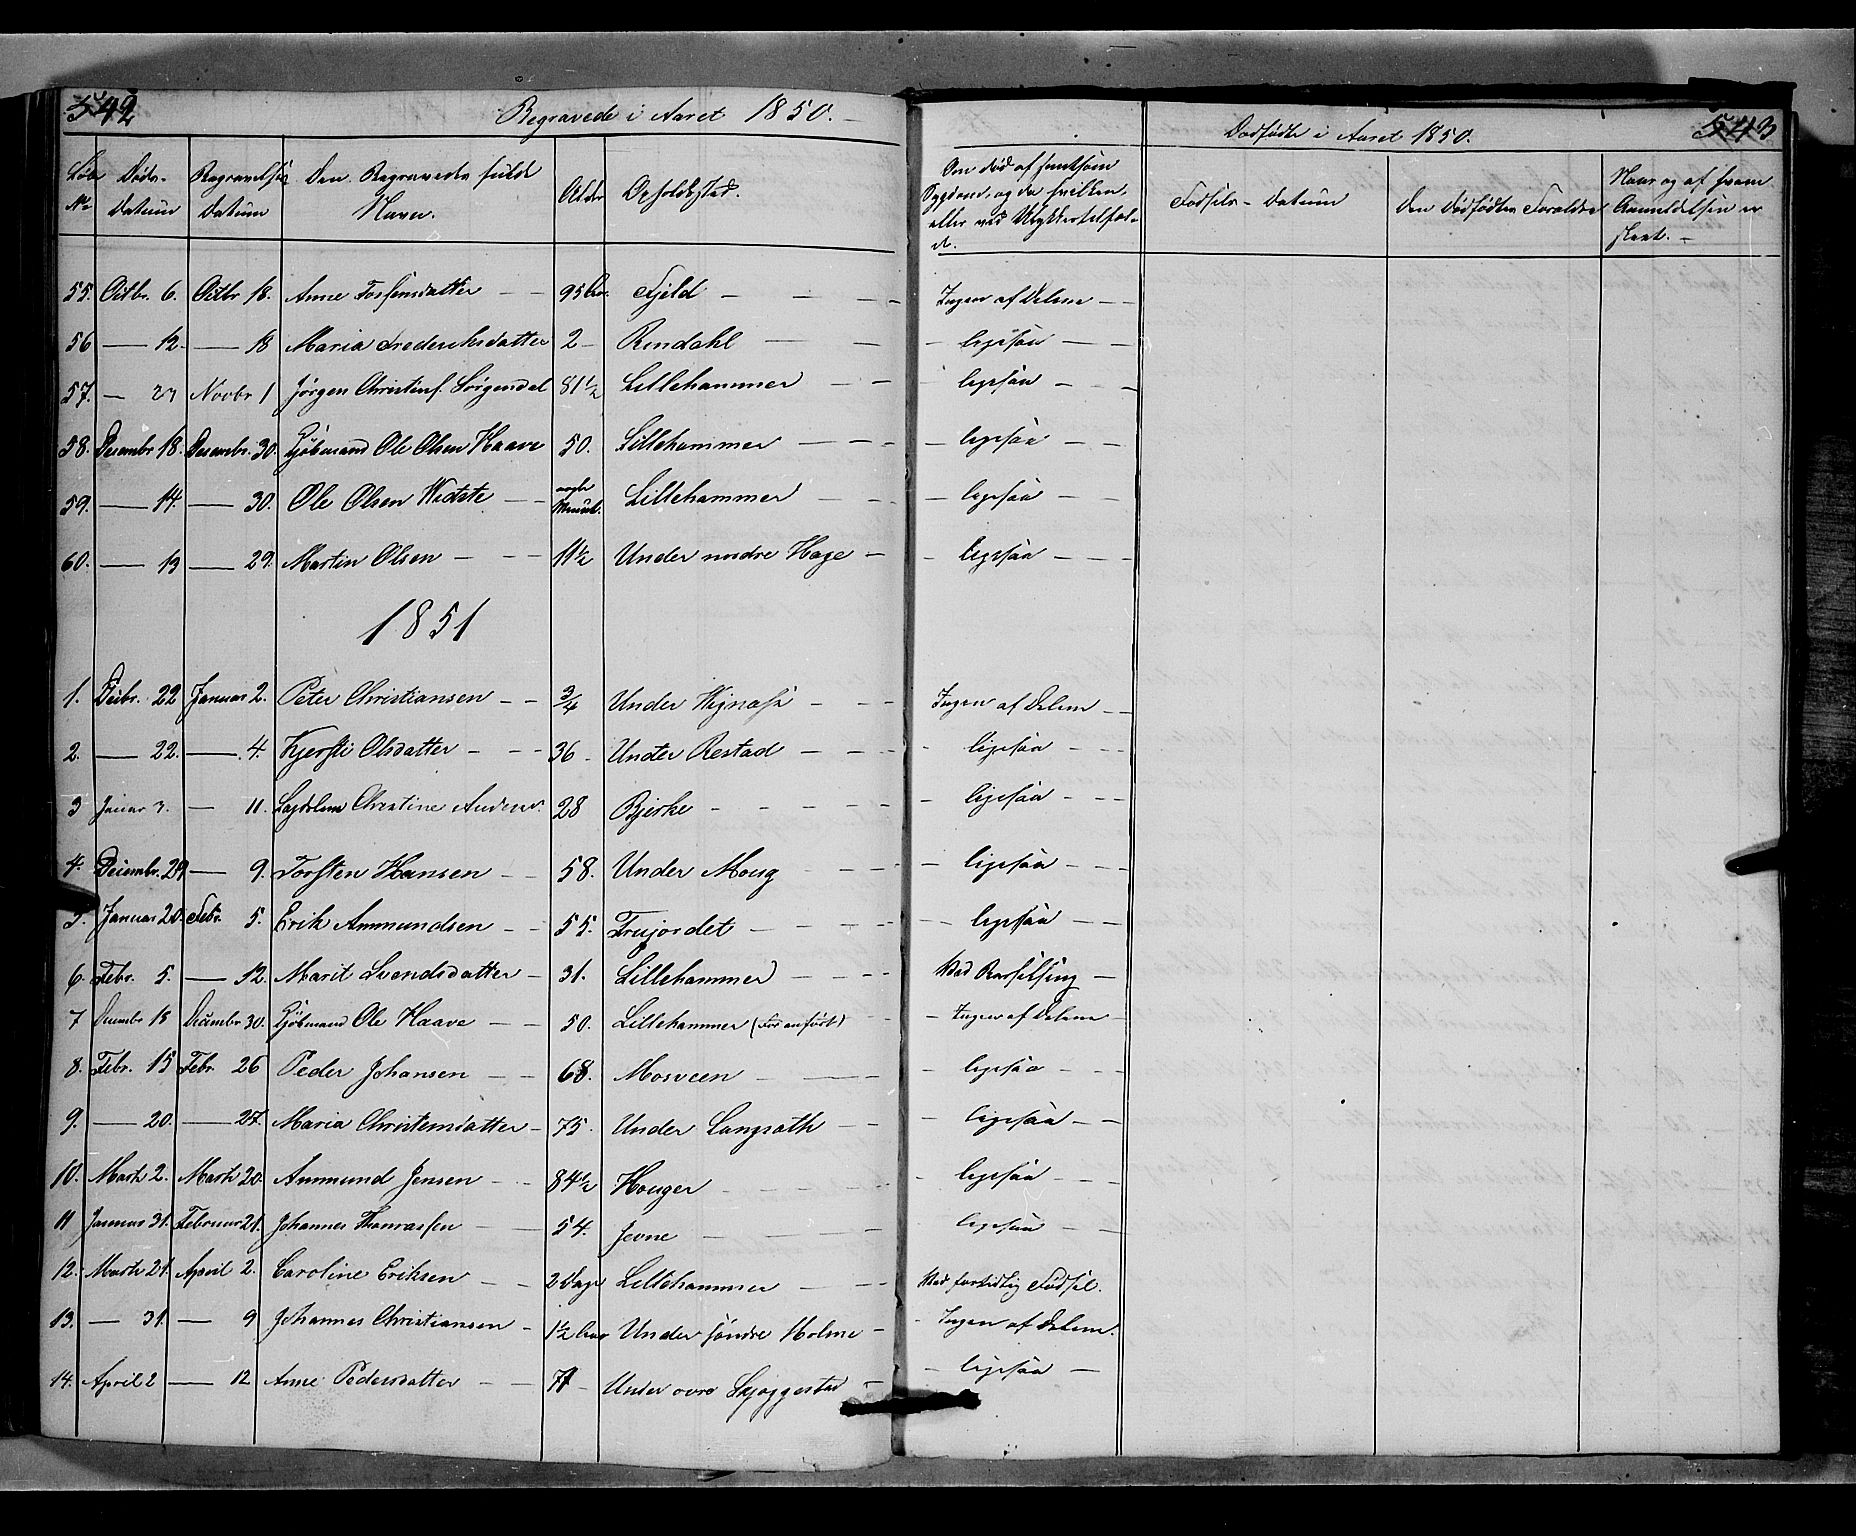 542
Begravede i Aaret 1850.
Løbe No Døds-Datum Begravelses Datum Den Begravedes fulde Navn. Alder Opholdsstad. Om død af smitsom Sygdom, og da hvilken, eller ved Ulykkestilfælde.
55. Octbr. 6. Octbr. 18. Anne Torstensdatter 95 Aar. Fjeld Ingen af Delene
56 — 12. — 18 Maria Frederiksdatter 2 Rindahl ligesaa
57. — 27 Novbr 1 Jørgen Christens. Sørgendal 81 1/2 Lillehammer ligesaa
58. Decembr 18. Decembr. 30. Kjøbmand Ole Olsen Haave 50. Lillehammer ligesaa
59. — 14. — 30. Ole Olsen Lillehammer ligesaa
60. — 13 — 29. Martin Olsen 11 1/2 Under nordre Hage ligesaa
1851
1. Decbr. 22 Januar 2. Peter Christiansen 3/4 Under Ingen af Delene
2. — 22. — 4. Kjersti Olsdatter 36 Under Restad ligesaa
3 Januar 3. — 11. Christine 28 Bjerke ligesaa
4. Decembr. 29 — 9. Torsten Hansen 58. Under Moug ligesaa
5. Januar 20. Febr. 5. Erik Ammundsen 55. Trujordet ligesaa
6. Febr. 5. — 12. Marit Svendsdatter 31. Lillehammer Ved Barselseng
7 Decembr 18 Decembr 30. Kjøbmand Ole Haave 50. Lillehammer (før anført) Ingen af Delene
8. Febr. 15 Febr. 26 Peder Johansen 68. Mosveen ligesaa
9. — 20. — 27. Maria Christensdatter 75. Under Langsæth ligesaa
10. Marts 2. Marts 20. Ammund Jensen 84 1/2 Houger ligesaa
11 Januar 31. Februar 21. Johannes Thomassen 54. Jevne ligesaa
12. Marts 21. April 2. Caroline Eriksen 2 Dage Lillehammer Ved fortidlig Fødsel.
13. — 31. — 9. Johannes Christiansen 1 1/2 Aar Under søndre Holme Ingen af Delene.
14. April 2 — 12 Anne Pedersdatter 71 Under øvre Skjoggestad ligesaa
543
Dødfødte i Aaret 1850.
Fødsels-Datum Den Dødfødtes Forældre Naar og af hvem Anmeldelsen er skeet.